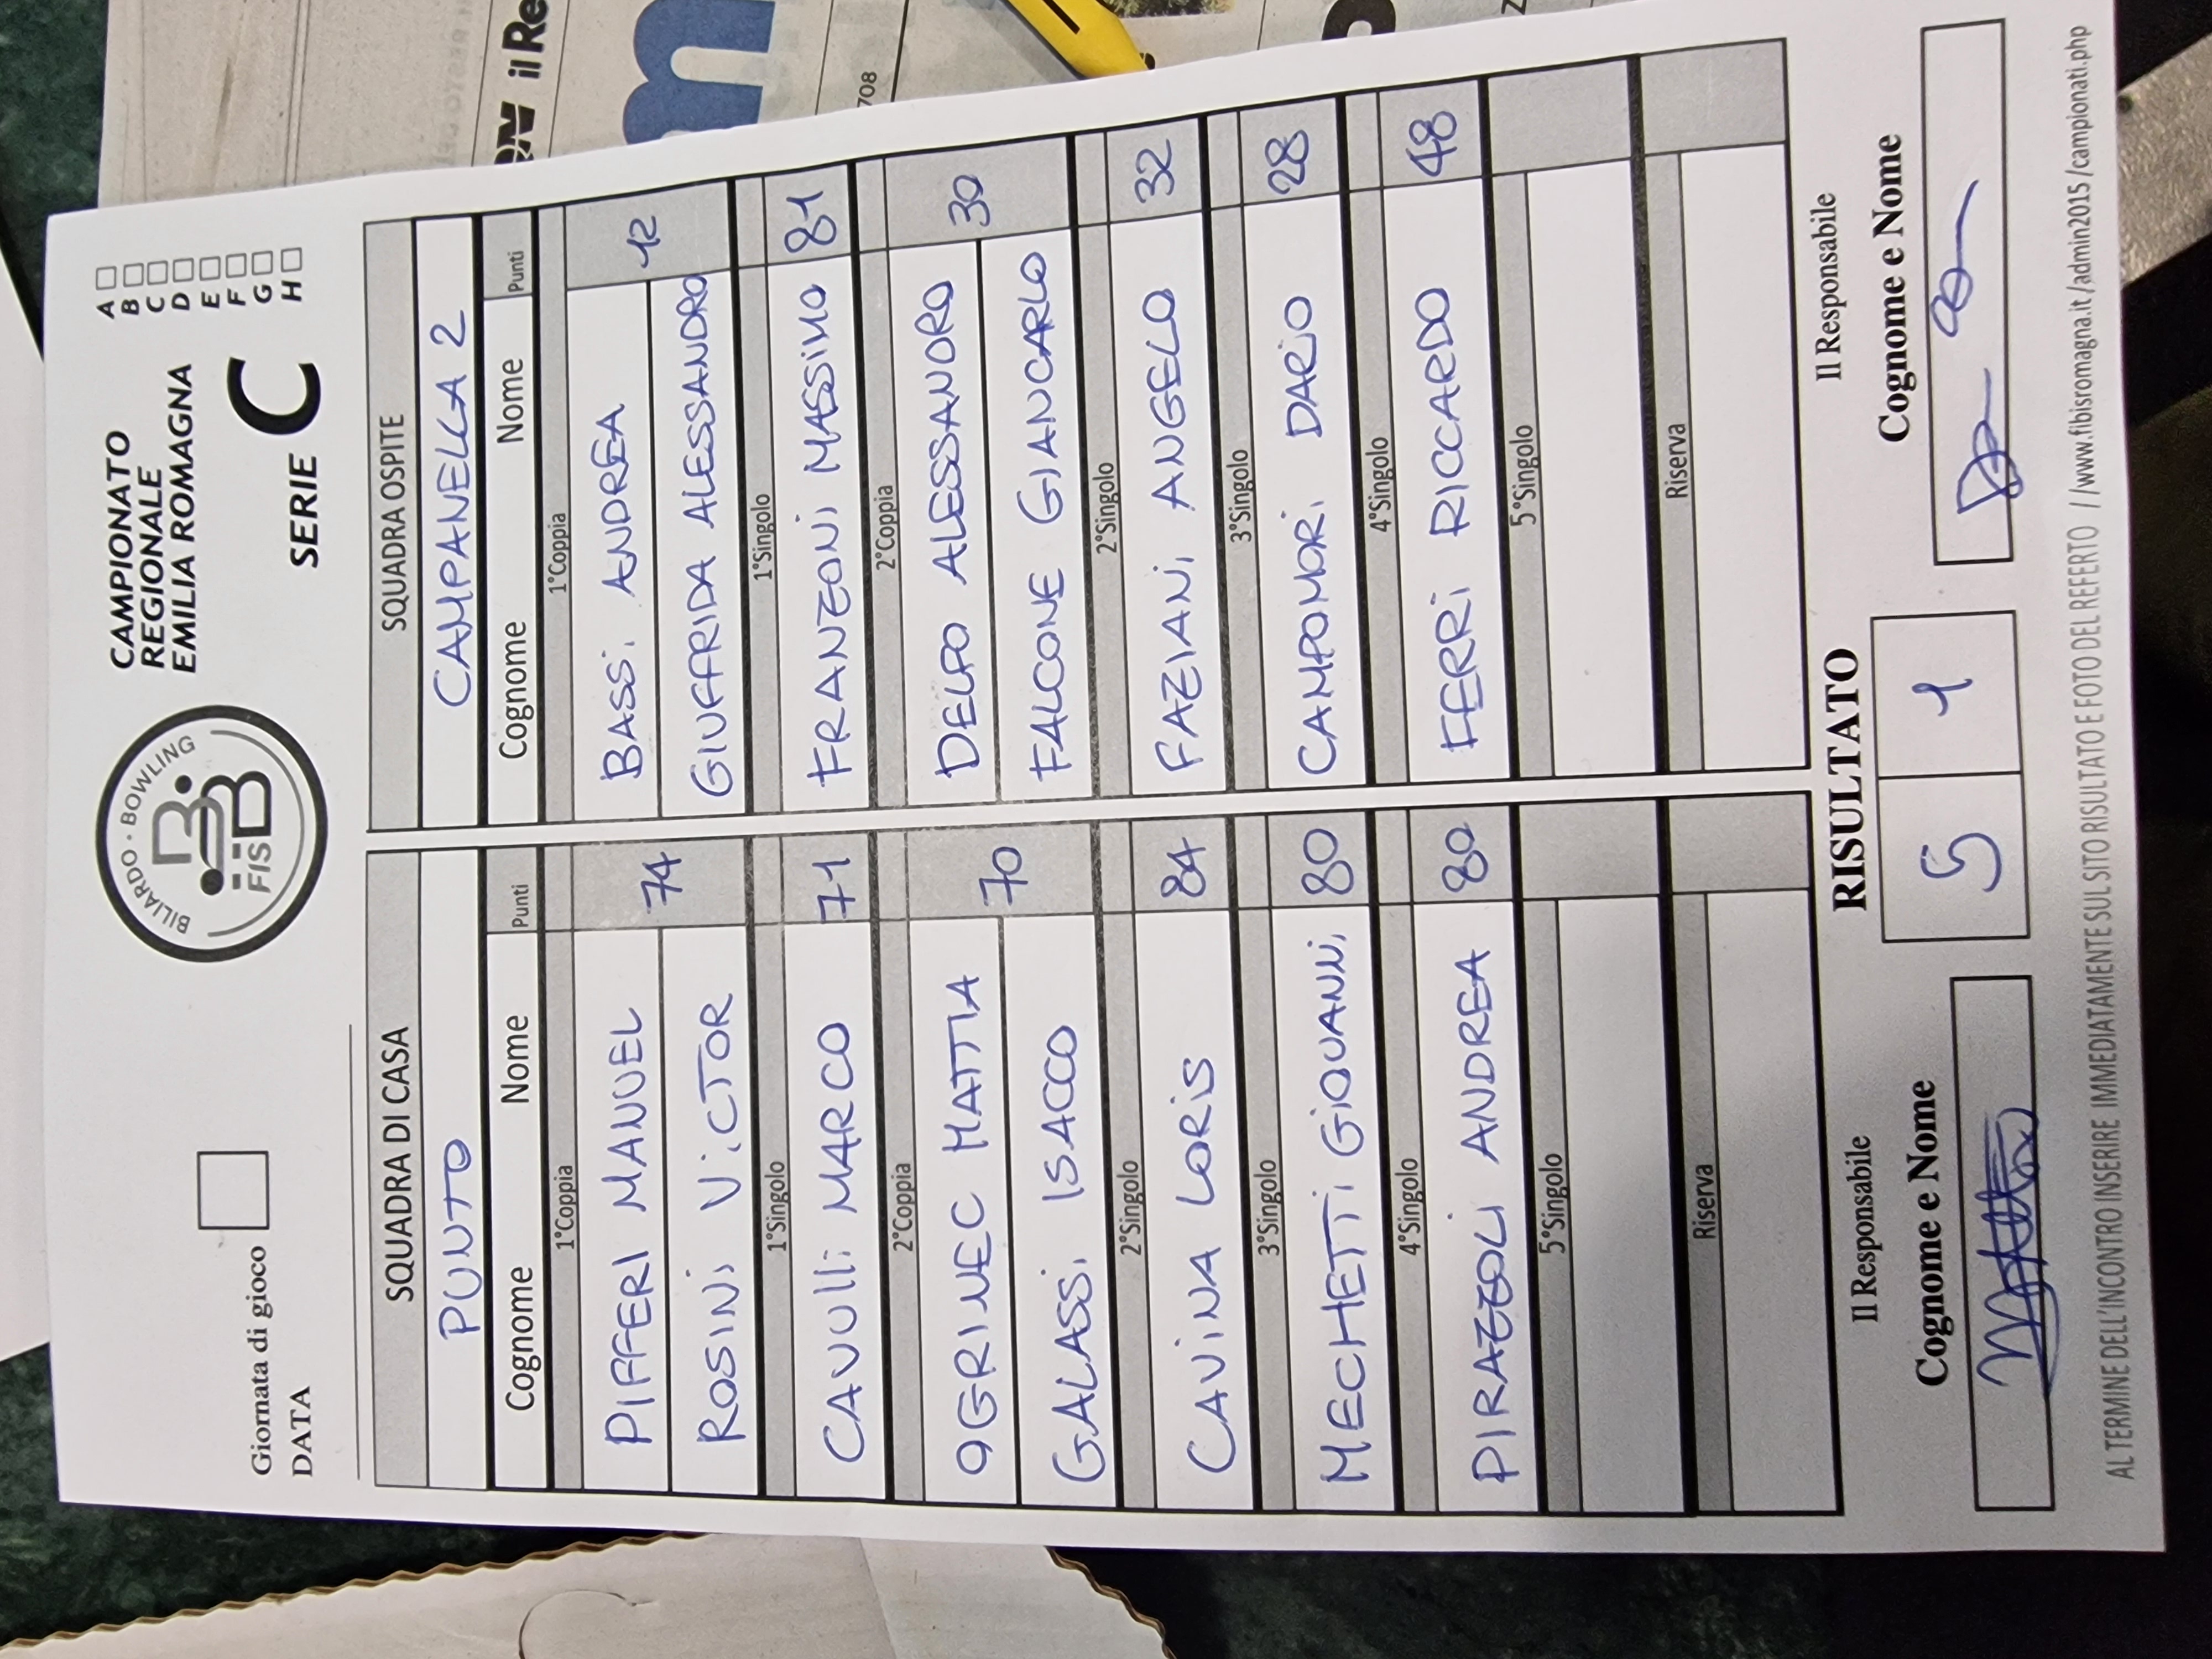 Giornata di gioco
DATA
BILIARDO • BOWLING
FISBB
CAMPIONATO
REGIONALE
EMILIA ROMAGNA
SERIE C
A
B
C
D
E
F
G
H
SQUADRA DI CASA SQUADRA OSPITE
PUNTO CAMPANELLA 2
Cognome Nome Punti Cognome Nome Punti
1°Coppia 1°Coppia
PIFFERI MANUEL 74 BASSi ANDREA 12
ROSINi ViCTOR GIUFFRIDA ALESSANDRO
1°Singolo 1°Singolo
CAVUlli MARCO 71 FRANZONi MASSiMO 81
2°Coppia 2°Coppia
OGRINEC MATTIA 70 DELFO ALESSANDRO 30
GALASSi ISACCO FALCONE GIANCARLO
2°Singolo 2°Singolo
CAViNA LORiS 84 FAZIANi ANGELO 32
3°Singolo 3°Singolo
MECHETTi GiOVANNi 80 CAMPOMORi DARiO 28
4°Singolo 4°Singolo
PIRAZZOLi ANDREA 80 FERRi RICCARDO 48
5°Singolo 5°Singolo
Riserva Riserva
Il Responsabile RISULTATO Il Responsabile
Cognome e Nome 5 1 Cognome e Nome
AL TERMINE DELL'INCONTRO INSERIRE IMMEDIATAMENTE SUL SITO RISULTATO E FOTO DEL REFERTO //www.fibisromagna.it/admin2015/campionati.php
il Re
m
708